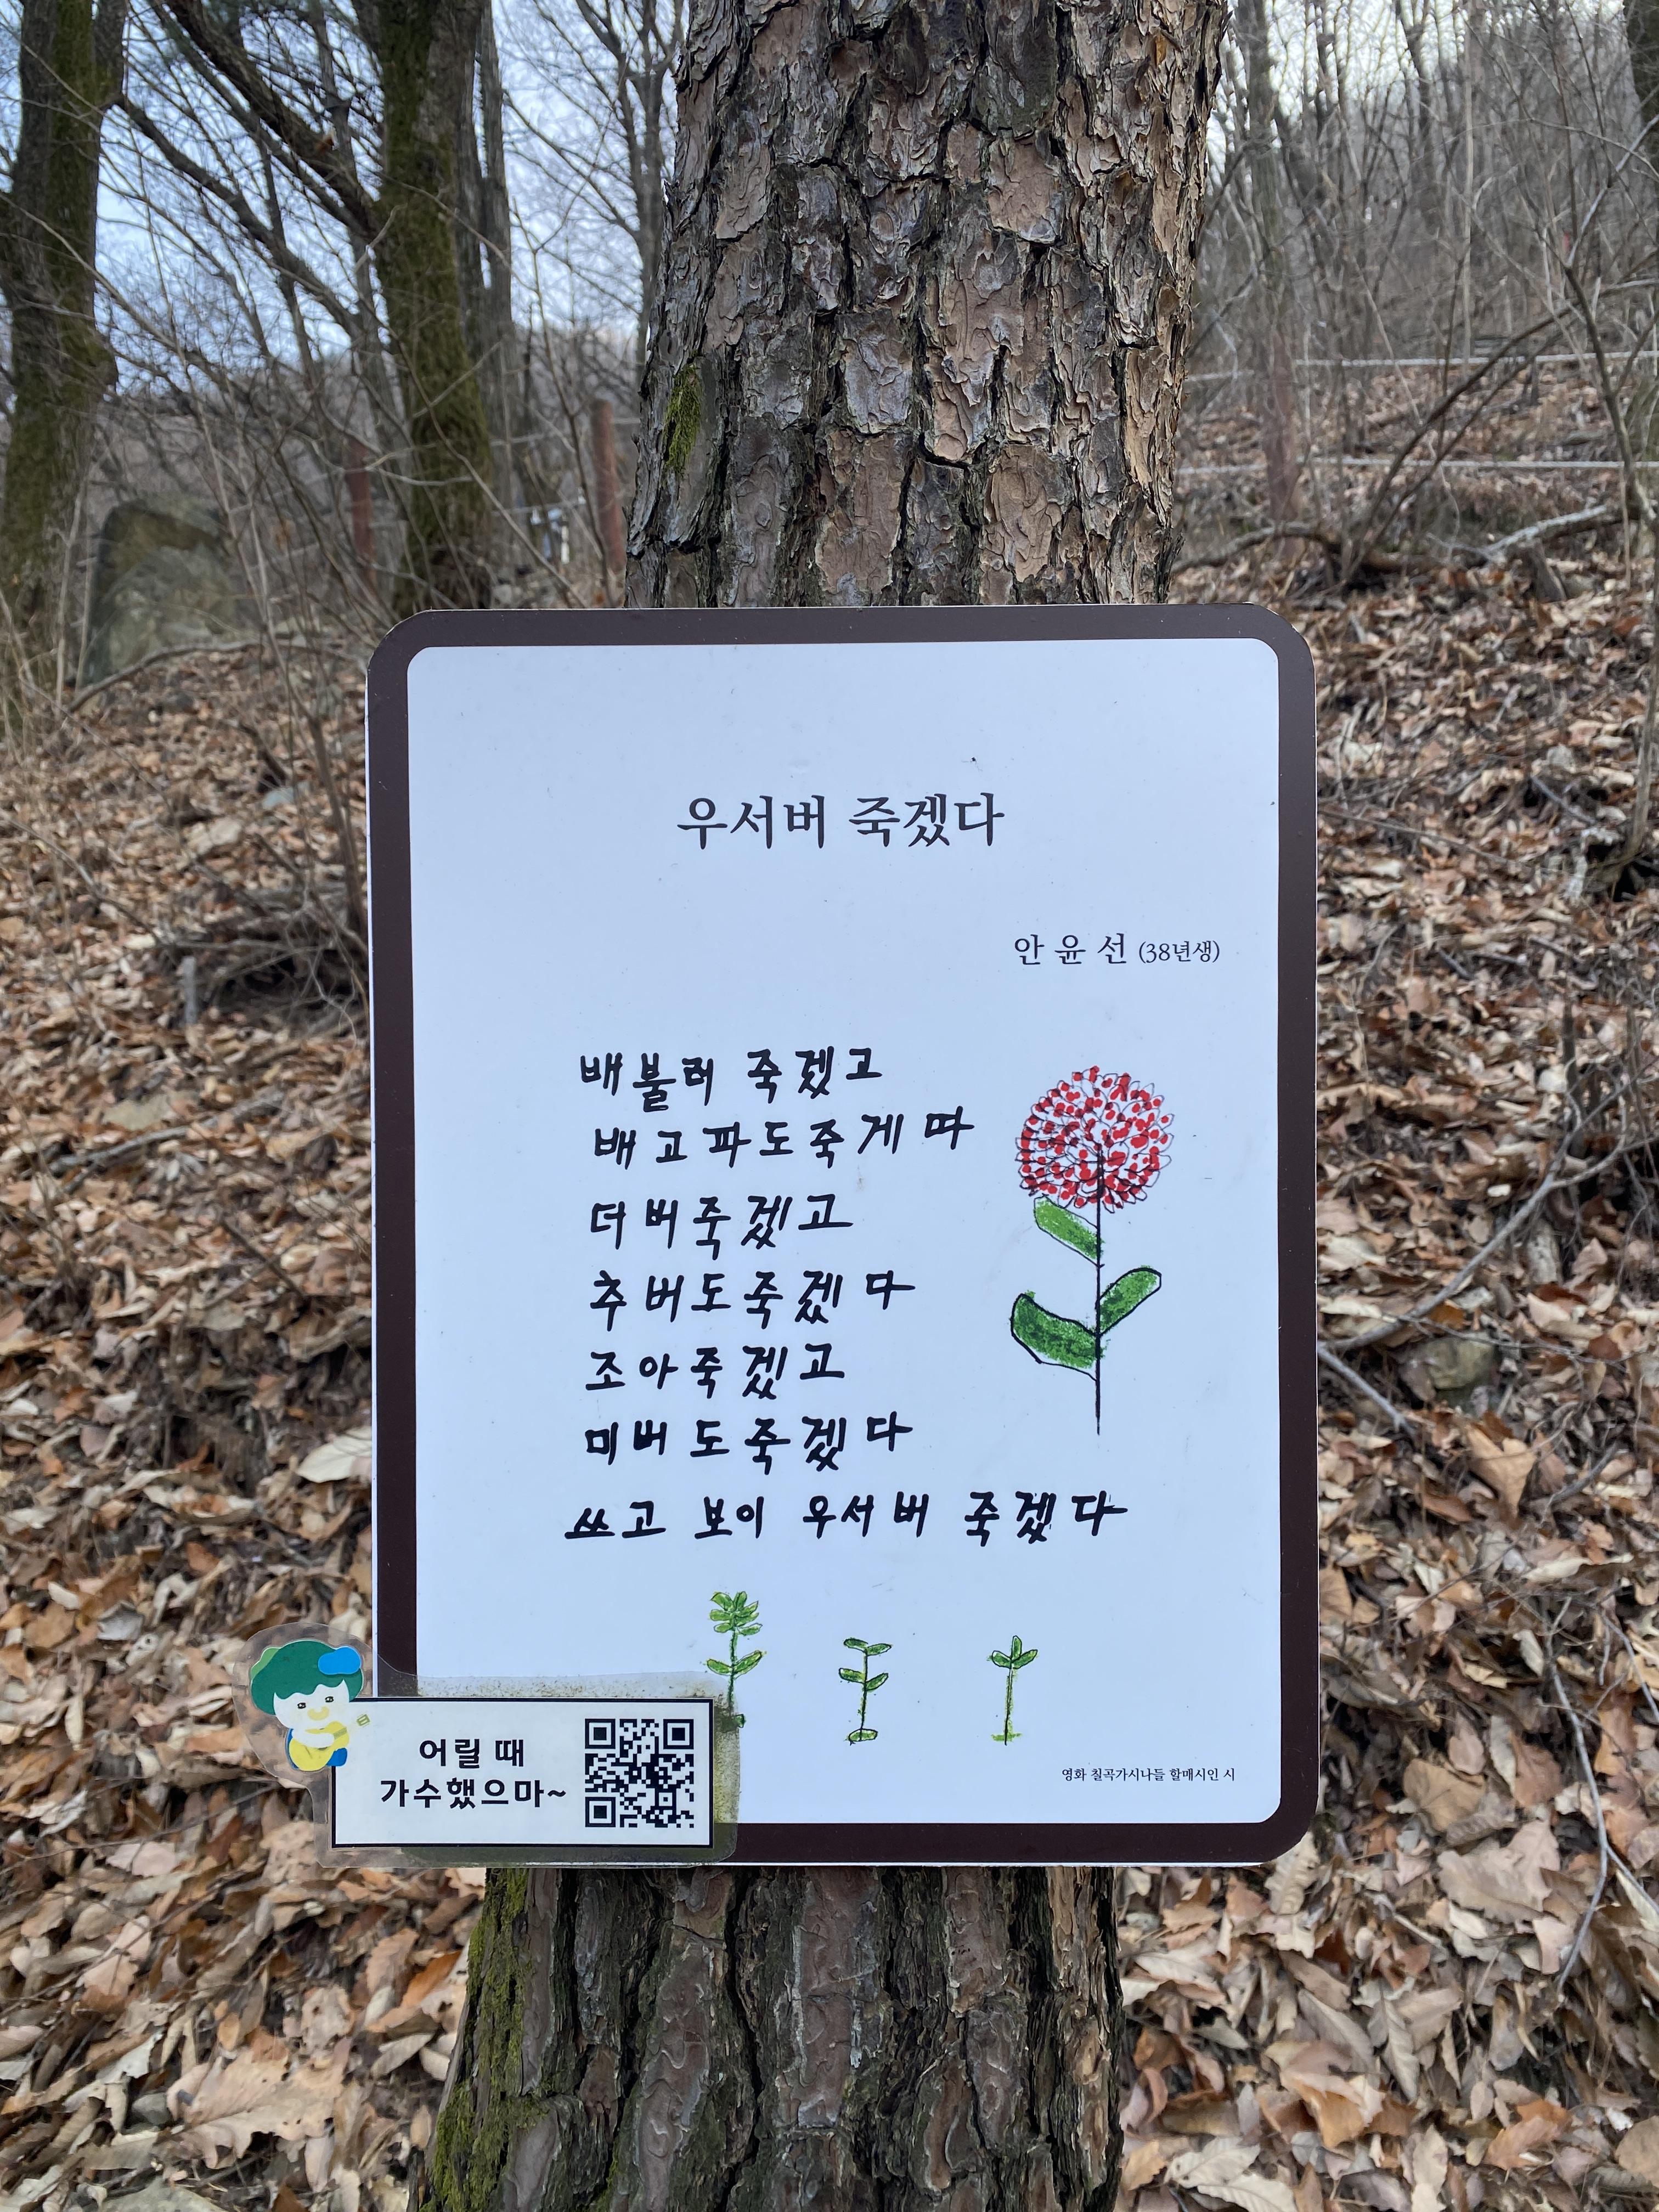 우서버 죽겠다
안 윤 선 (38년생)
배불러 죽겠고
배고파도죽게따
더버죽겠고
추버도죽겠다
조아죽겠고
미버도죽겠다
쓰고 보이 우서버 죽겠다
영화 칠곡가시나들 할매시인 시
어릴 때
가수했으마~